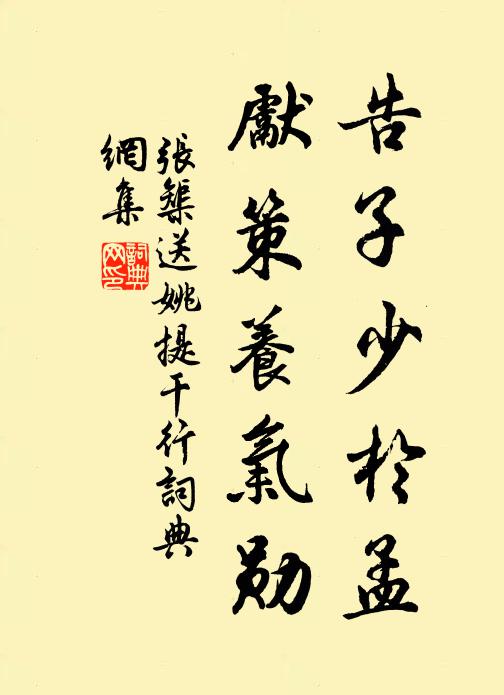 告子少於孟
獻策養氣勛
張榘送姚提干行詞典
網集
詞典
网印